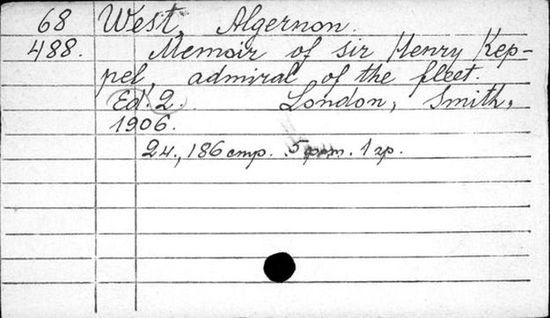 68 West, Algernon.
488. Memoir of sir Henry Kep-
pel, admiral of the fleet.
Ed. 2. London, Smith,
1906.
24., 186 стр. 1 гр.